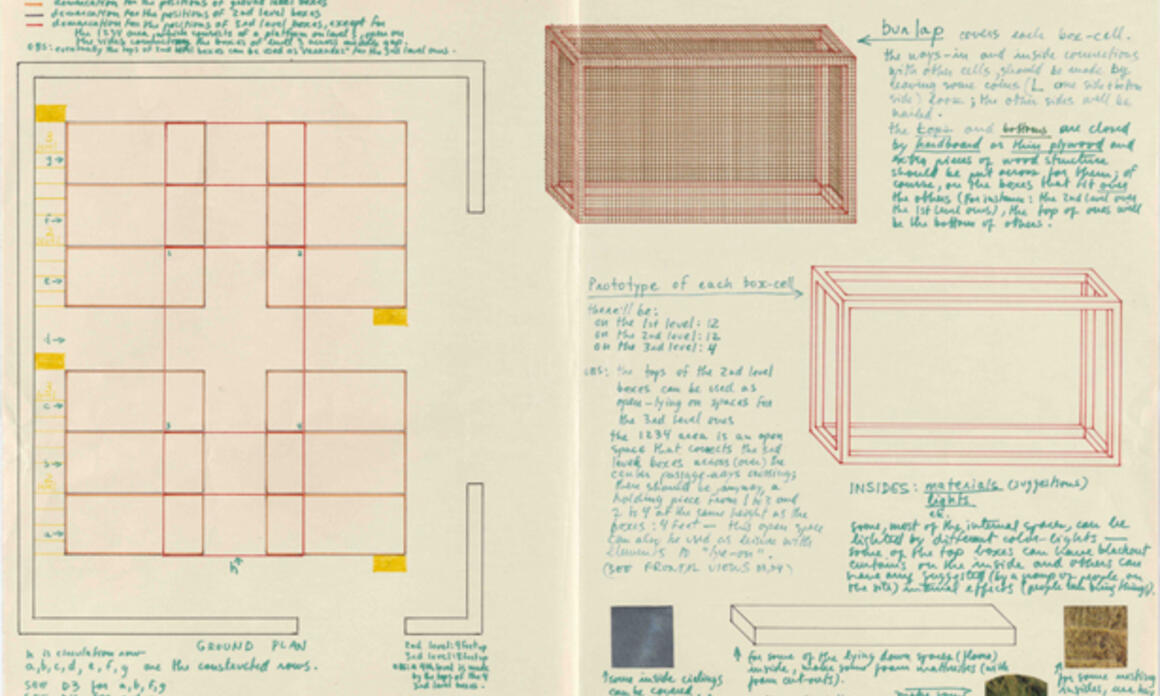 demarcation for the positions of ground level boxes
demarcation for the positions of 2nd level boxes
demarcation for the positions of 3rd level boxes, except for
the 1234 area, which consists of a platform on level
g
f
e
d
c
b
a
h
1
2
3
4
GROUND PLAN
h is circulation row
a, b, c, d, e, f, g are the constructed rows.
SEE D3 for a, b, f, g
2nd level: 4 feet up
3rd level: 8 feet up
by the tops of the
3rd level boxes.
burlap covers each box-cell.
the ways-in and inside connections
with other cells, should be made by
leaving some sides (one side + bottom
side) loose; the other sides will be
nailed.
the tops and bottoms are closed
by hardboard or thin plywood and
extra pieces of wood structure
should be put across for them; of
course, on the boxes that sit over
the others (for instance: the 2nd level over
the 1st level ones), the top of ones will
be the bottom of others.
Prototype of each box-cell
there'll be:
on the 1st level: 12
on the 2nd level: 12
on the 3rd level: 4
OBS: the tops of the 2nd level
boxes can be used as
open-lying on spaces for
the 3rd level ones
the 1234 area is an open
space that connects the 3rd
level boxes across (over) the
center passage-ways crossing;
there should be, anyway, a
holding piece from 1 to 3 and
2 to 4 at the same height as the
boxes: 4 feet — this open space
can also be used as leisure with
elements to "lye-on".
(SEE FRONTAL VIEWS
INSIDES: materials (suggestions)
lights
etc.
some, most of the internal spaces, can be
lighted by different color-lights —
some of the top boxes can have blackout
curtains on the inside and others can
have any suggested (by a group of people, on
the site) internal effects (people can bring things).
some inside ceilings
can be covered
for some of the lying down spaces (floors)
inside, make some foam mattresses (with
foam cut-outs).
for some
insides, use
make some